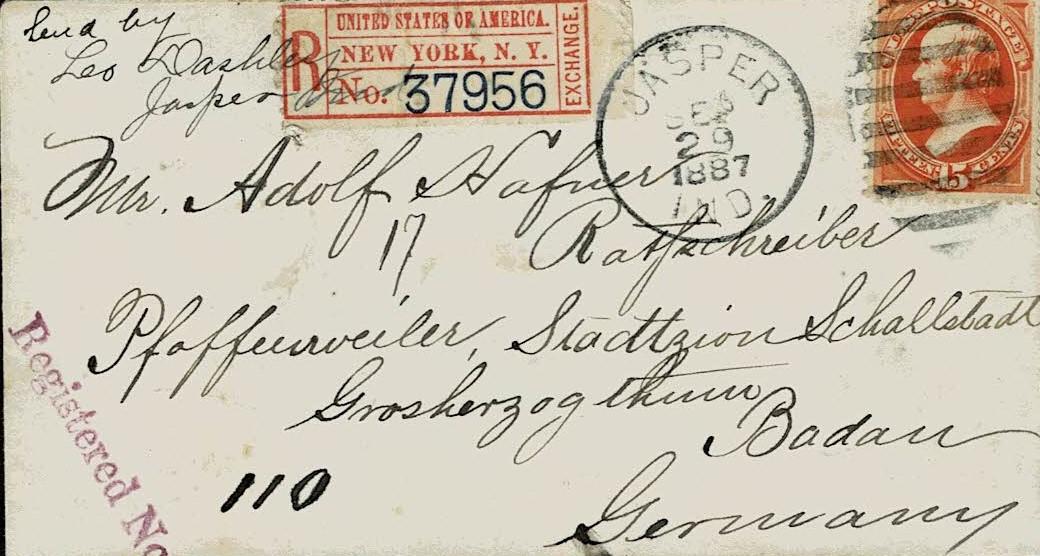 Send by
Leo Dashle
Jasper Ind
R
UNITED STATES OF AMERICA.
NEW YORK, N. Y.
No. 37956
EXCHANGE.
JASPER
SEP
29
1887
IND.
U.S. POSTAGE
FIFTEEN 15 CENTS
Mr. Adolf Hafner
17 Ratschreiber
Pfaffenweiler, Stadtzion Schallstadt
Grosherzogthum
Badan
Germany
Registered No
110